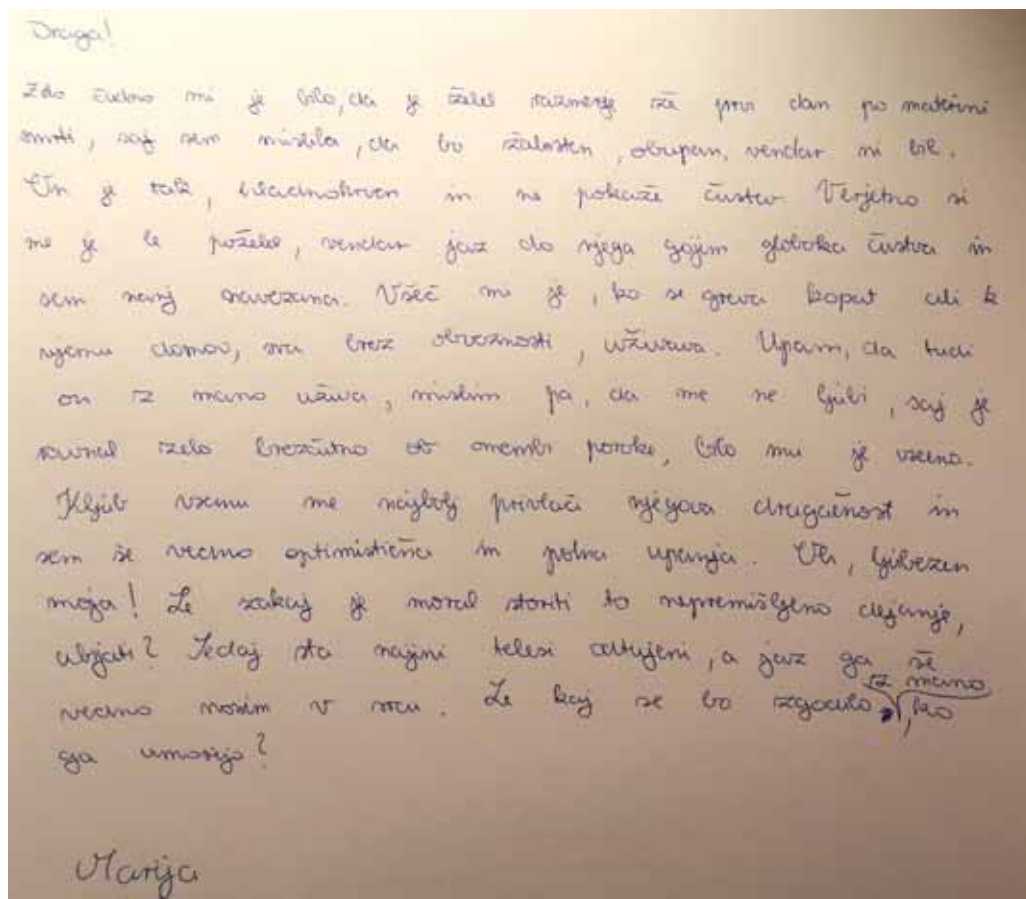 Draga!
Zelo čudno mi je bilo, da je želel razmerje že prvi dan po materini
smrti, saj sem mislila, da bo žalosten, obupan, vendar ni bil.
On je tak, hladnokrven in ne pokaže čustev. Verjetno si
me je le poželel, vendar jaz do njega gojim globoka čustva in
sem nanj navezana. Všeč mi je, ko se greva kopat ali k
njemu domov, sva brez obveznosti, uživava. Upam, da tudi
on z mano uživa, mislim pa, da me ne ljubi, saj je
ravnal zelo brezčutno ob omembi poroke, bilo mu je vseeno.
Kljub vsemu me najbolj privlači njegova drugačnost in
sem še vedno optimistična in polna upanja. Oh, ljubezen
moja! Le zakaj je moral storiti to nepremišljeno dejanje,
ubijati? Sedaj sta najini telesi odtujeni, a jaz ga še
vedno nosim v srcu. Le kaj se bo zgodilo z mano, ko
ga umorijo?
Marija